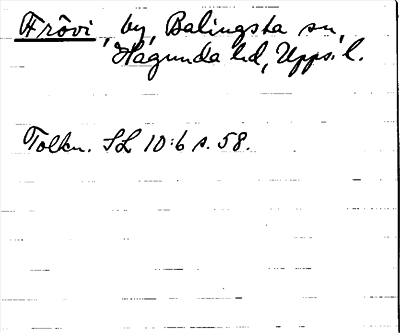 Frövi, by, Balingsta sn,
Hagunda hd, Upps. l.
Tolkn. SL 10:6 s. 58.